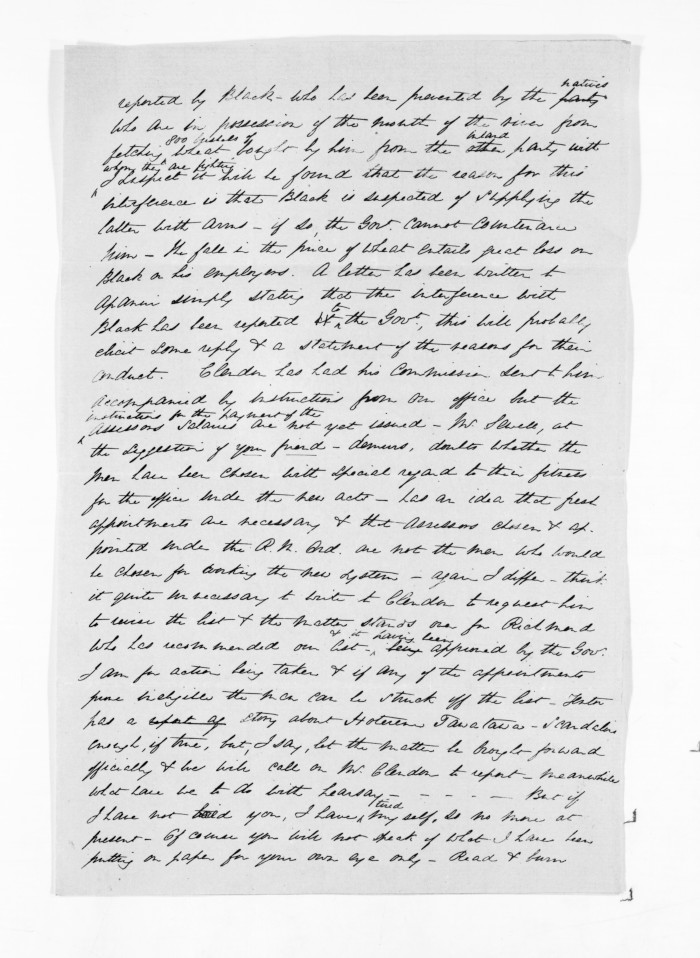 natives
reported by Black - who has been prevented by the party
who are in possession of the mouth of the river from
800 bushels of inland
fetching wheat bought by him from the other party with
whom they are fighting
I suspect it will be found that the reason for this
interference is that Black is suspected of supplying the
latter with arms - if so, the Govt. cannot countenance
him - The fall in the price of wheat entails great loss on
Black or his employers. A letter has been written to
Apanui simply stating that the interference with
Black has been reported to the Govt, this will probably
elicit some reply & a statement of the reasons for their
conduct. Clendon has had his Commission sent to him
accompanied by instructions from our office but the
instructions for the payment of the
assessors salaries are not yet issued - Mr. Sewell, at
the suggestion of your friend - demurs, doubts whether the
men have been chosen with special regard to their fitness
for the office under the new acts - has an idea that fresh
appointments are necessary & that assessors chosen & ap-
pointed under the R.M. Ord. are not the men who would
be chosen for working the new system - again I differ - think
it quite unnecessary to write to Clendon to request him
to revise the list & the matter stands over for Richmond
& it having been
who has recommended our list - being approved by the Gov.
I am for action being taken & if any of the appointments
prove ineligible the men can be struck off the list -
has a report of story about Hoterene Tawatawa - scandalous
enough, if true, but, I say, let the matter be brought forward
officially & we will call on Mr. Clendon to report - meanwhile
what have we to do with hearsay - - - - - But if
I have not tired you, I have tired myself, so no more at
present - Of course you will not speak of what I have been
putting on paper for your own eye only - Read & burn